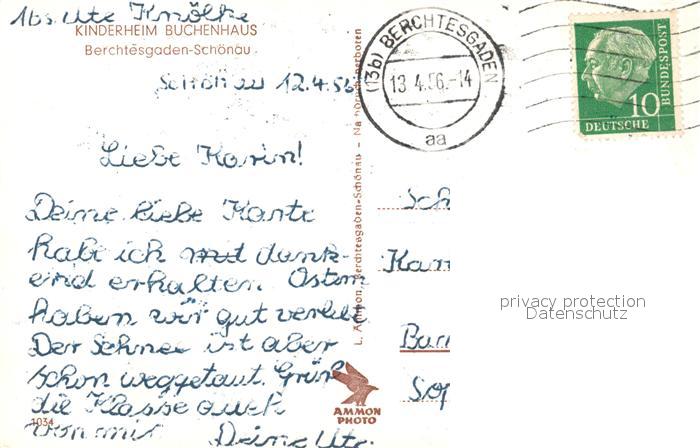 Abs. Ute Knölke
KINDERHEIM BUCHENHAUS
Berchtesgaden-Schönau
Schönau 12.4.56
Liebe Karin!
Deine liebe Karte
habe ich mit dank-
end erhalten. Ostern
haben wir gut verlebt.
Der Schnee ist aber
schon weggetaut. Grüß
die Klasse auch
von mir Deine Ute.
1034
L. Ammon, Berchtesgaden-Schönau – Nachdruck verboten
AMMON
PHOTO
(13b) BERCHTESGADEN
13.4.56.-14
aa
10
DEUTSCHE
BUNDESPOST
Sch
Kar
Bar
Sop
privacy protection
Datenschutz